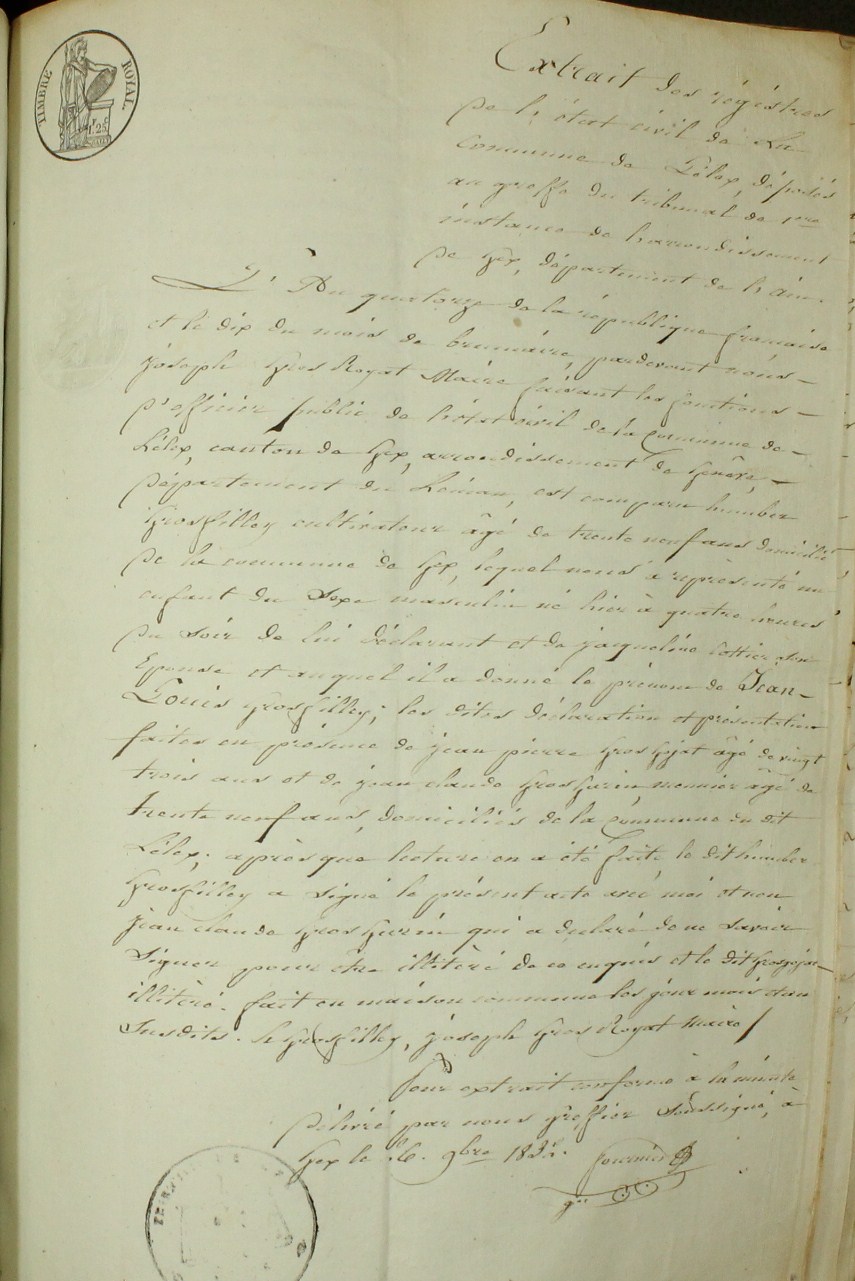 TIMBRE ROYAL
1f 25c
Extrait des régistres
de l'état civil de la
Commune de Lélex, déposés
au greffe du tribunal de 1ere
instance de l'arrondissement
de Gex, département de l'ain.
L'An quatorze de la république francaise
et le dix du mois de brumaire, pardevant nous –
joseph Gros Royat Maire faisant les fonctions –
d'officier public de l'état civil de la Commune de –
Lélex, canton de Gex, arrondissement de Genève, –
département du Léman, est comparu humber
Grosfilley cultivateur âgé de trente neuf ans domicilié
de la commune de Gex, lequel nous a représenté un
enfant du Sexe masculin né hier à quatre heures
du soir de lui déclarant et de jaqueline Cottier son
Epouse et auquel il a donné le prénom de Jean –
Louis Grosfilley; les dites déclaration et présentation
faites en présence de jean pierre Grosgojat âgé de vingt
trois ans et de jean claude Grosgurin, meunier âgé de
trente neuf ans, domiciliés de la Commune du dit
Lélex; après que lecture en a été faite, le dit humber
Grosfilley a signé le présent acte avec moi et non
jean claude Grosgurin qui a declaré de ne savoir
Signer pour être illitéré de ce enquis et le dit Grosgojat –
illitéré. fait en maison commune les jour mois et an
Susdits. h Grosfilley, joseph Gros Royat Maire /
Pour extrait conforme à la minute
Délivré par nous Greffier Soussigné, à
Gex le 9bre
gr